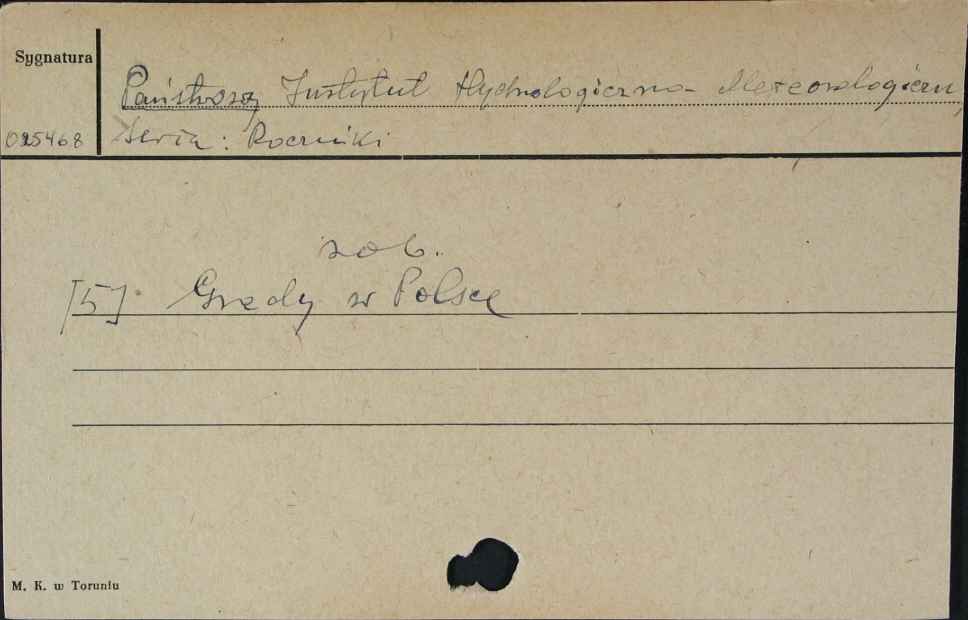 Sygnatura
Państwowy Instytut Hydrologiczno-Meteorologiczn
025468 Seria: Roczniki
zob.
[5] Grady w Polsce
M. K. w Toruniu